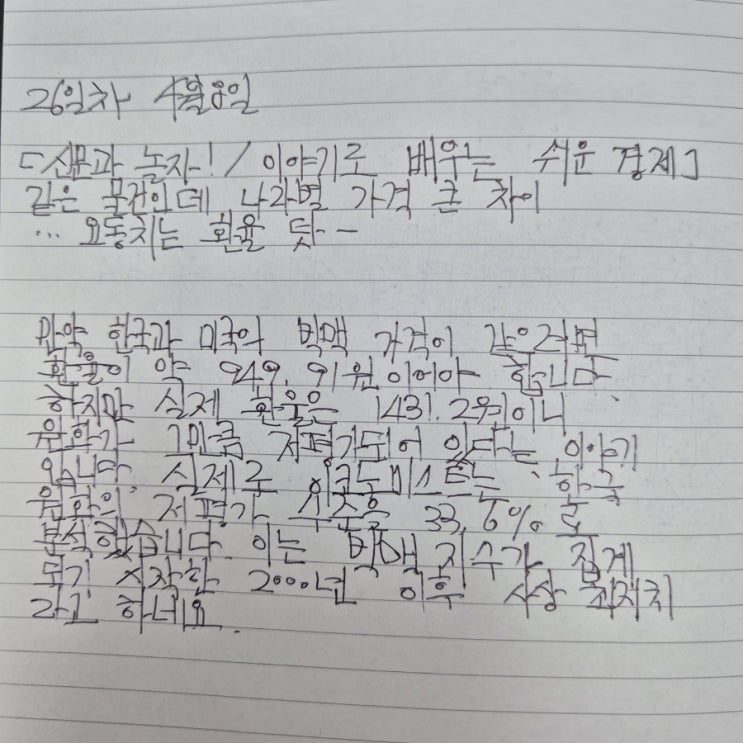 26일차 4월 8일
「신문과 놀자!/이야기로 배우는 쉬운 경제」
같은 물건인데 나라별 가격 큰 차이
... 요동치는 환율 탓--
만약 한국과 미국의 빅맥 가격이 같으려면
환율이 약 949.91원이어야 합니다.
하지만 실제 환율은 1431.2원이니
원화가 그만큼 저평가되어 있다는 이야기
입니다. 실제로 이코노미스트는 한국
원화의 저평가 수준을 33.6%로
분석했습니다. 이는 빅맥 지수가 집계
되기 시작한 2000년 이후 사상 최저치
라고 하네요.